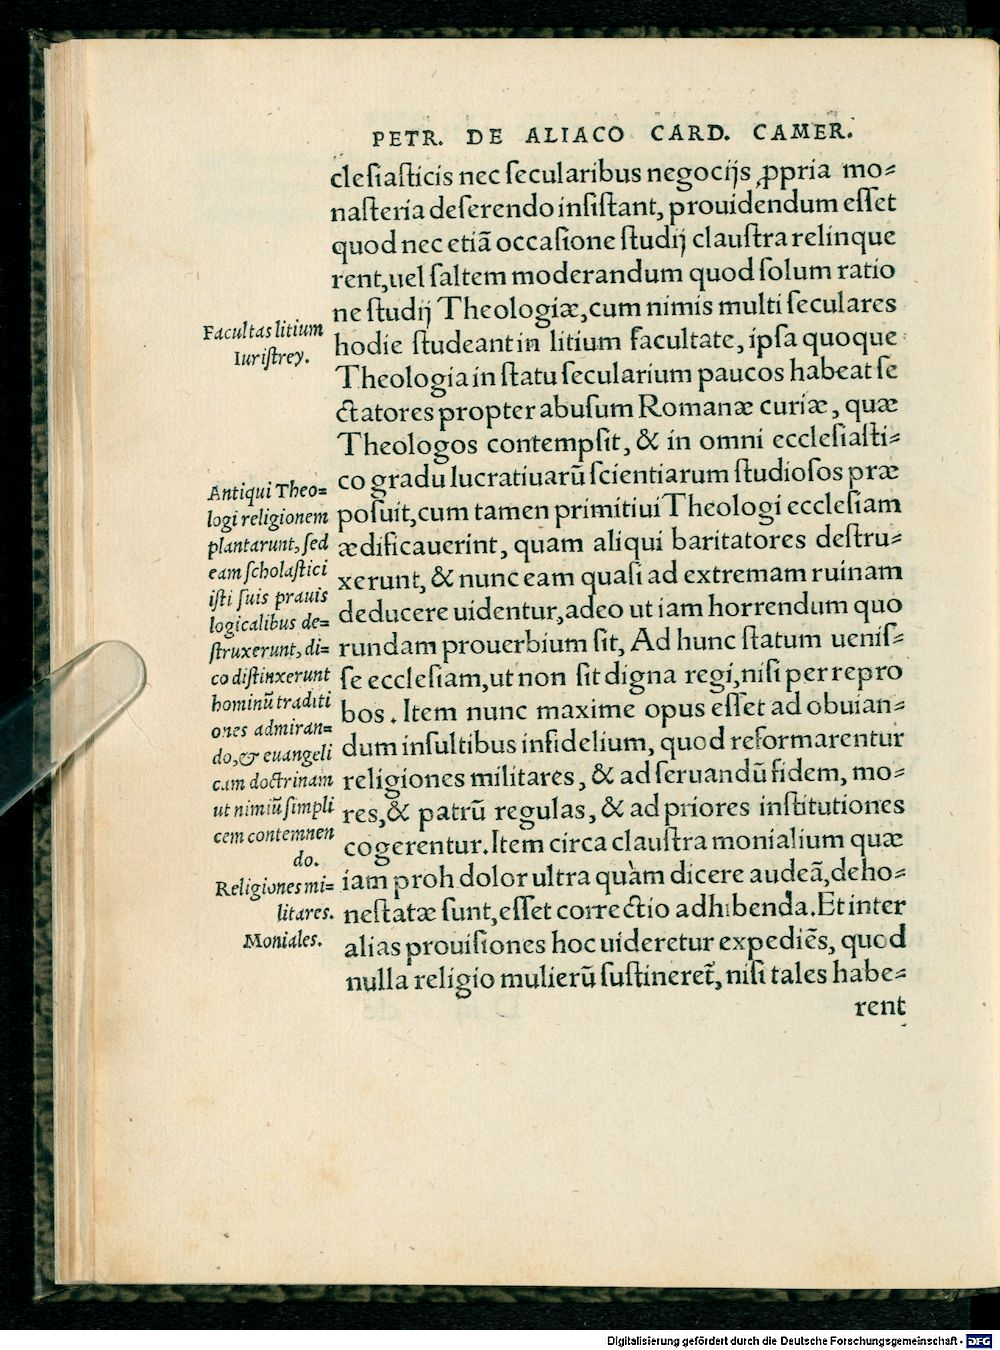 PETR. DE ALIACO CARD. CAMER.
cleſiaſticis nec ſecularibus negocijs ꝓpria mo⸗
naſteria deſerendo inſiſtant, prouidendum eſſet
quod nec etiã occaſione ſtudij clauſtra relinque
rent, uel ſaltem moderandum quod ſolum ratio
ne ſtudij Theologiæ, cum nimis multi ſeculares
hodie ſtudeant in litium facultate, ipſa quoque
Theologia in ſtatu ſecularium paucos habeat ſe
ctatores propter abuſum Romanæ curiæ, quæ
Theologos contempſit, & in omni eccleſiaſti⸗
co gradu lucratiuarũ ſcientiarum ſtudioſos præ
poſuit, cum tamen primitiui Theologi eccleſiam
ædificauerint, quam aliqui baritatores deſtru⸗
xerunt, & nunc eam quaſi ad extremam ruinam
deducere uidentur, adeo ut iam horrendum quo
rundam prouerbium ſit, Ad hunc ſtatum ueniſ⸗
ſe eccleſiam, ut non ſit digna regi, niſi per repro
bos. Item nunc maxime opus eſſet ad obuian⸗
dum inſultibus infidelium, quod reformarentur
religiones militares, & ad ſeruandũ fidem, mo⸗
res, & patrũ regulas, & ad priores inſtitutiones
cogerentur. Item circa clauſtra monialium quæ
iam proh dolor ultra quàm dicere audeã, deho⸗
neſtatæ ſunt, eſſet correctio adhibenda. Et inter
alias prouiſiones hoc uideretur expediẽs, quod
nulla religio mulierũ ſuſtineret̃, niſi tales habe⸗
rent
Facultas litium
Iuriſtrey.
Antiqui Theo⸗
logi religionem
plantarunt, ſed
eam ſcholaſtici
iſti ſuis prauis
logicalibus de⸗
ſtruxerunt, di⸗
co diſtinxerunt
hominũ traditi
ones admiran⸗
do, & euangeli
cam doctrinam
ut nimiũ ſimpli
cem contemnen
do.
Religiones mi⸗
litares.
Moniales.
Digitalisierung gefördert durch die Deutsche Forschungsgemeinschaft - DFG